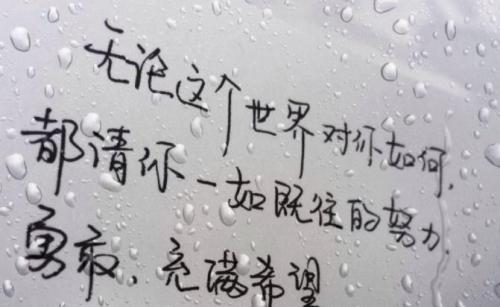 无论这个世界对你如何,
都请你一如既往的努力.
勇敢.充满希望